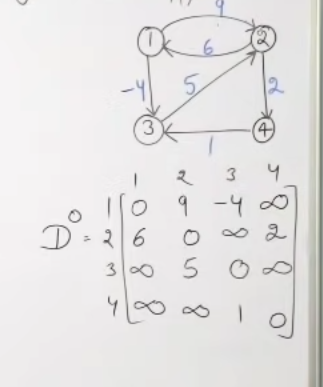 9
1 2
6
-4 5 2
3 4
1
1 2 3 4
1 0 9 -4 ∞
D⁰ = 2 6 0 ∞ 2
3 ∞ 5 0 ∞
4 ∞ ∞ 1 0